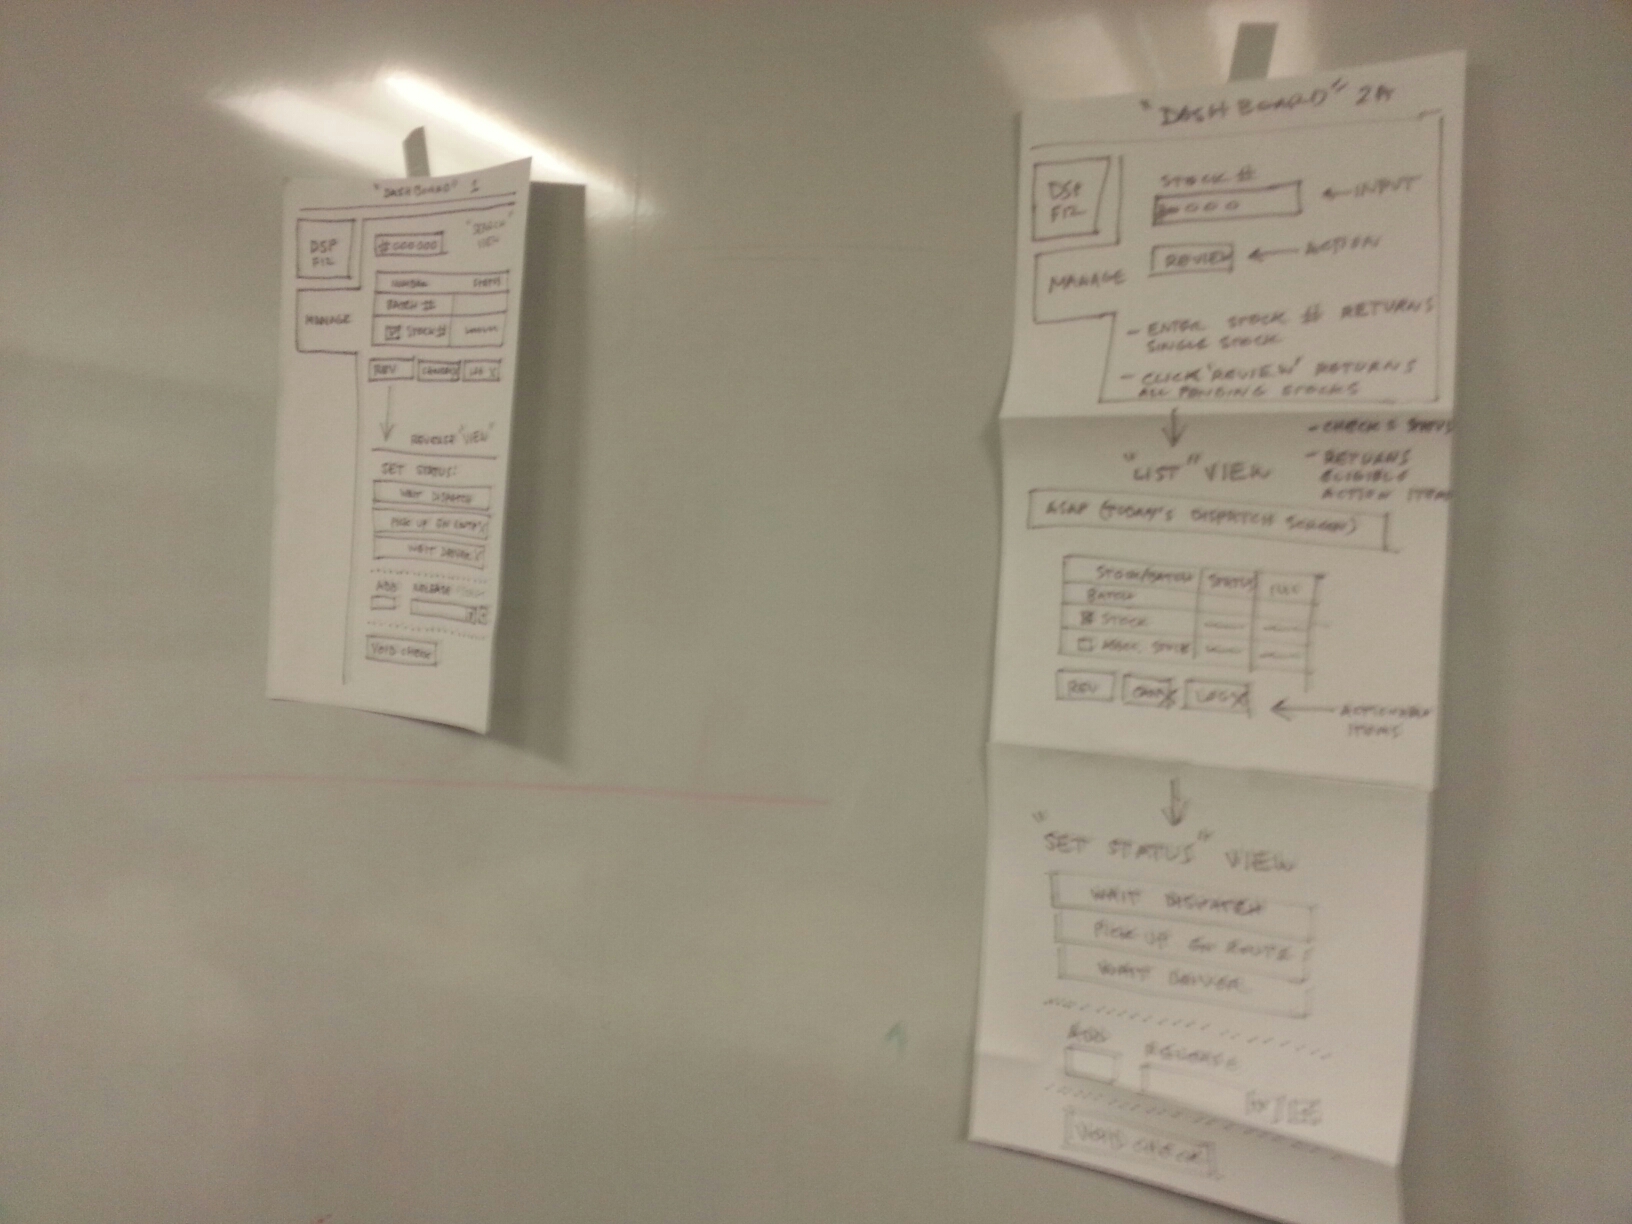 "DASHBOARD" 1
DSP
F12
MANAGE
"SEARCH
VIEW"
#000000
NUMBER STATUS
BATCH #
STOCK #
REV
SET STATUS:
WAIT DISPATCH
PICK UP EN
WAIT DRIVER
ADD RELEASE
VOID CHECK
"DASHBOARD" 2A
DSP
F12
MANAGE
STOCK #
INPUT
REVIEW
ACTION
- ENTER STOCK # RETURNS
SINGLE STOCK
- CLICK "REVIEW" RETURNS
ALL PENDING STOCKS
- CHECKS STATUS
- RETURNS
ELIGIBLE
ACTION ITEMS
"LIST" VIEW
ASAP (TODAY'S DISPATCH SCREEN)
STOCK/BATCH STATUS
BATCH
STOCK
ASSOC. STOCK
REV
ACTIONABLE
ITEMS
"SET STATUS" VIEW
WAIT DISPATCH
PICK UP EN ROUTE
WAIT DRIVER
ADD RELEASE
VOID CHECK